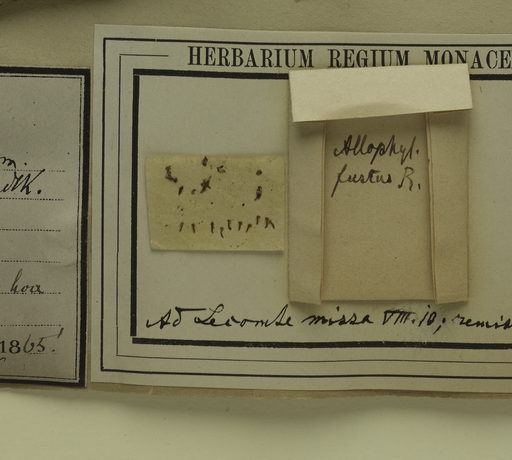 HERBARIUM REGIUM MONACE
Allophyl.
fustus R.
Ad Lecomte missa VIII.10; remis
m.
hoa
1865!